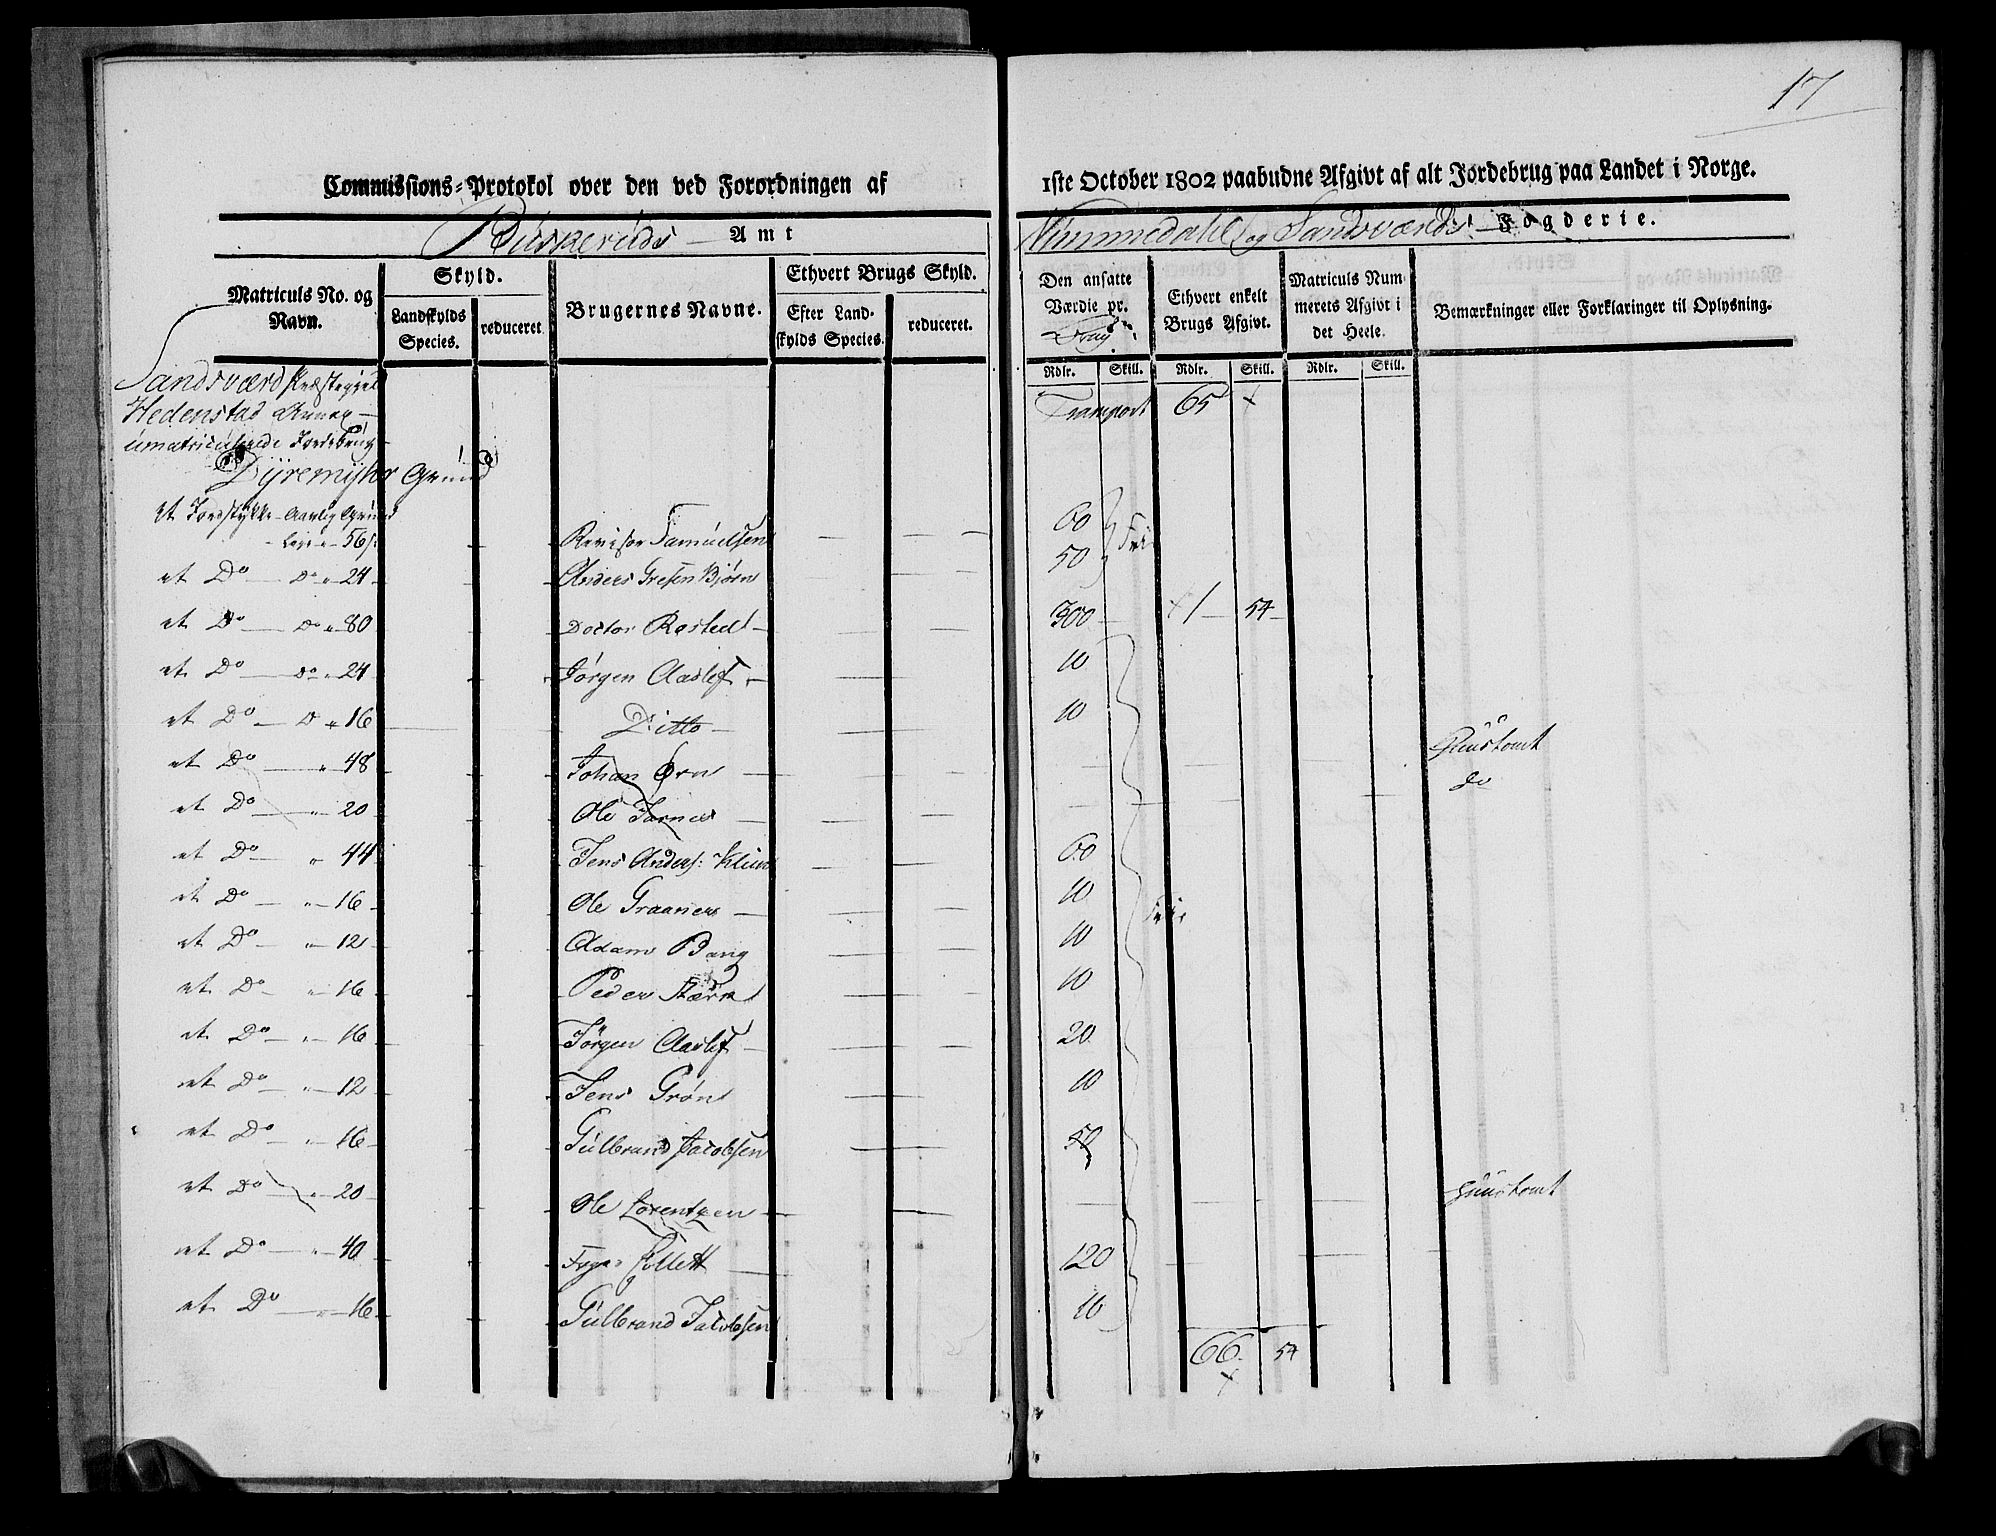 17
Commissions-Protokol over den ved Forordningen af 1ste October 1802 paabudne Afgivt af alt Jordebrug paa Landet i Norge.
Buskeruds Amt
Nummedahl og Sandsværds Fogderie.
Matriculs No. og Navn.
Skyld.
Landskylds Species.
reduceret
Brugernes Navne.
Ethvert Brugs Skyld.
Efter Landskylds Species.
reduceret.
Den ansatte Værdie pr.
Ethvert enkelt Brugs Afgivt.
Matriculs Nummerets Afgivt i det Heele.
Bemærkninger eller Forklaringer til Oplysning.
Rdlr. Skill. Rdlr. Skill. Rdlr. Skill.
Sandsværd Præstegjel
Hedenstad Annex
umatriculerede Jordebrug
Transport 65
Dyremyhr Grund
et Jordstykke Aarlig Grund
Leje 56 Revisor Samuelsen 60 Fri
et Do Do 24 Anders Gresen Bjørn 50
et Do Do 80 Doctor Rosted 300 1 54
et Do Do 24 Jørgen Aaslef 10
et Do D 16 Ditto 10
et Do 48 Johan Ørn Huustomt
et Do 20 Ole do
et Do 44 Jens Anders: 60
et Do 16 Ole Graaner 10 Frie
et Do 12 Adam Bang 10
et Do 16 Peder 10
et Do 16 Jørgen Aaslef 20
et Do 12 Jens Grøn 10
et Do 16 Gulbrand Jacobsen 50
et Do 20 Ole Lorentzen Huustomt
et Do 40 Collett 120
et Do 16 Gulbrand Jacobsen 10
66 54